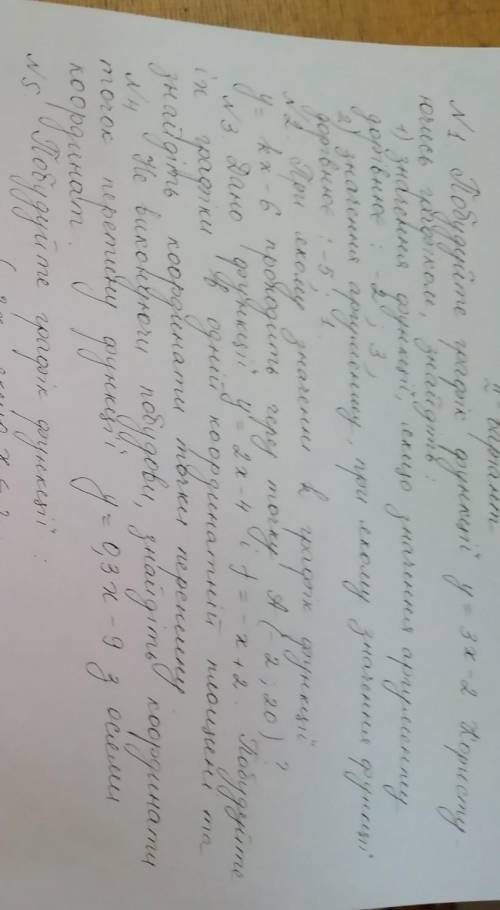 2 варіант
N1 Побудуйте графік функції y = 3x - 2 Користу-
ючись графіком, знайдіть:
1) значення функції, якщо значення аргументу
дорівнює: -2; 3;
2) значення аргументу, при якому значення функції
дорівнює: -5; 1.
N2 При якому значенні k графік функції
y = kx - 6 проходить через точку A (-2; 20)?
N3 Дано функції y = 2x - 4 і y = -x + 2. Побудуйте
їх графіки в одній координатній площині та
знайдіть координати точки перетину.
N4 Не виконуючи побудови, знайдіть координати
точок перетину функції y = 0,3x - 9 з осями
координат.
N5 Побудуйте графік функції: